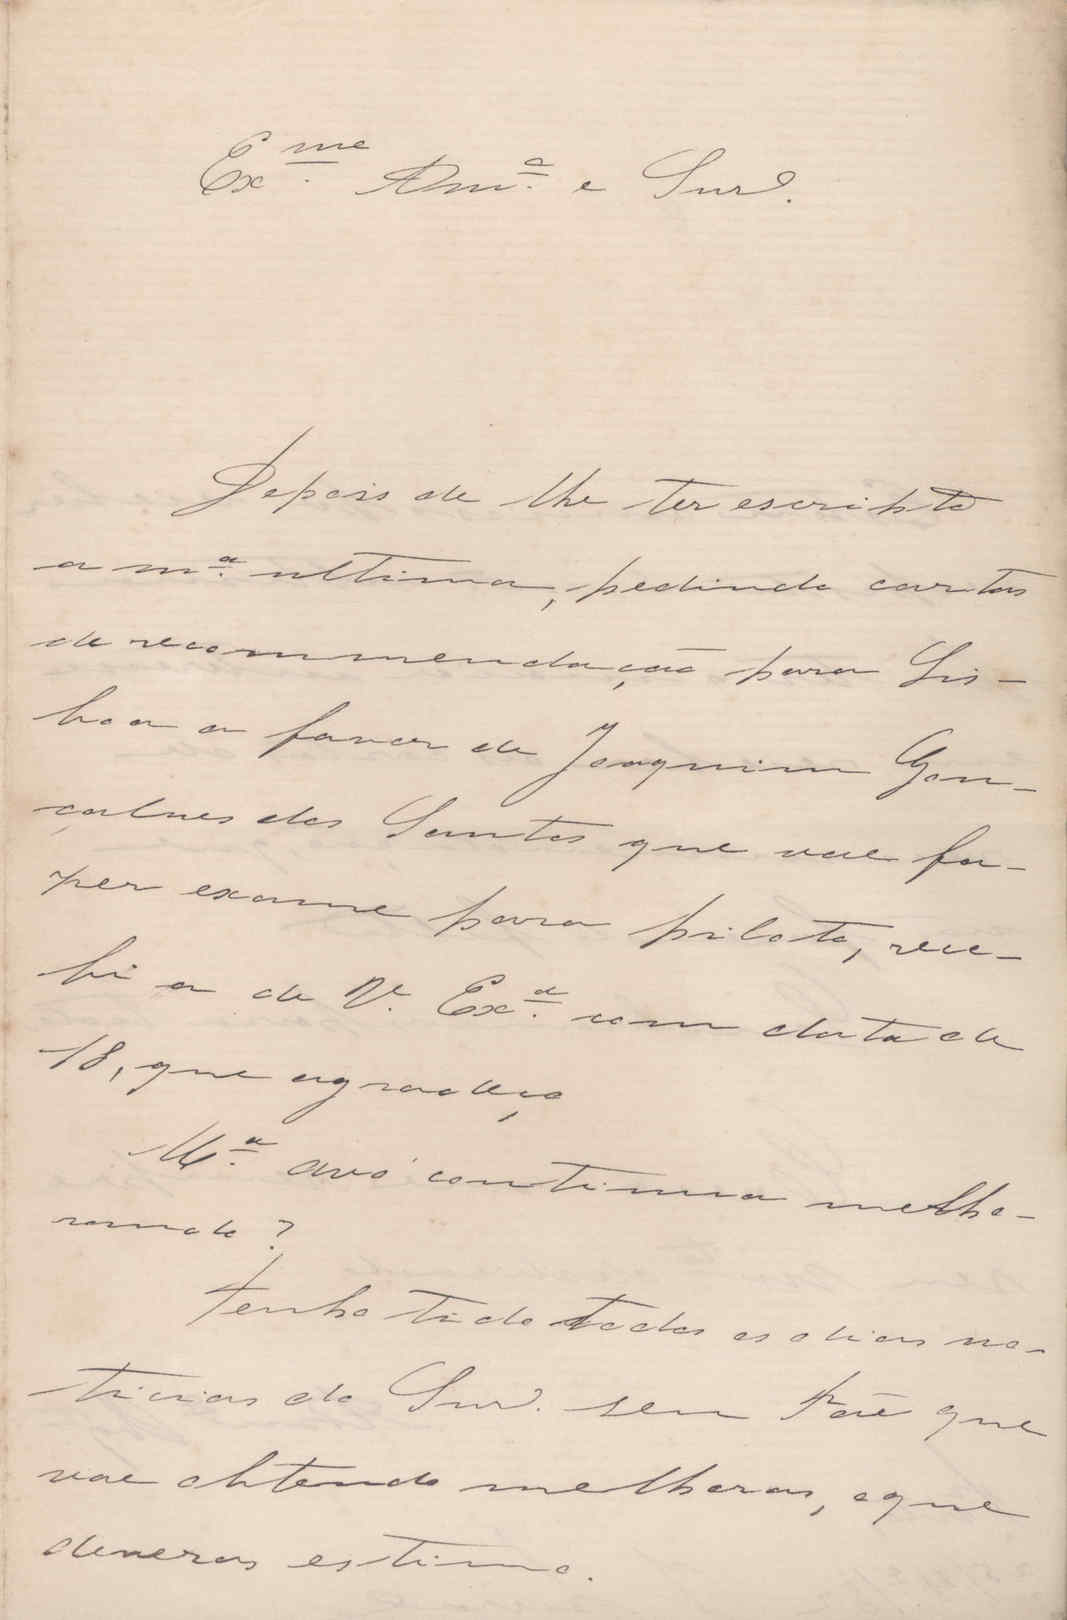 Ex.me Am.a e Snr.
Depois de lhe ter escripto
a m.a ultima, pedindo cartas
de recommendação para Lis-
boa a favor de Joaquim Gon-
çalves dos Santos que vae fa-
zer exame para piloto, rece-
bi a de V. Ex.a com data de
18, que agradeço
M.a avó continua melho-
rando?
Tenho tido todos os dias no-
ticias do Snr. seu Pae que
vae obtendo melhoras, o que
deveras estimo.